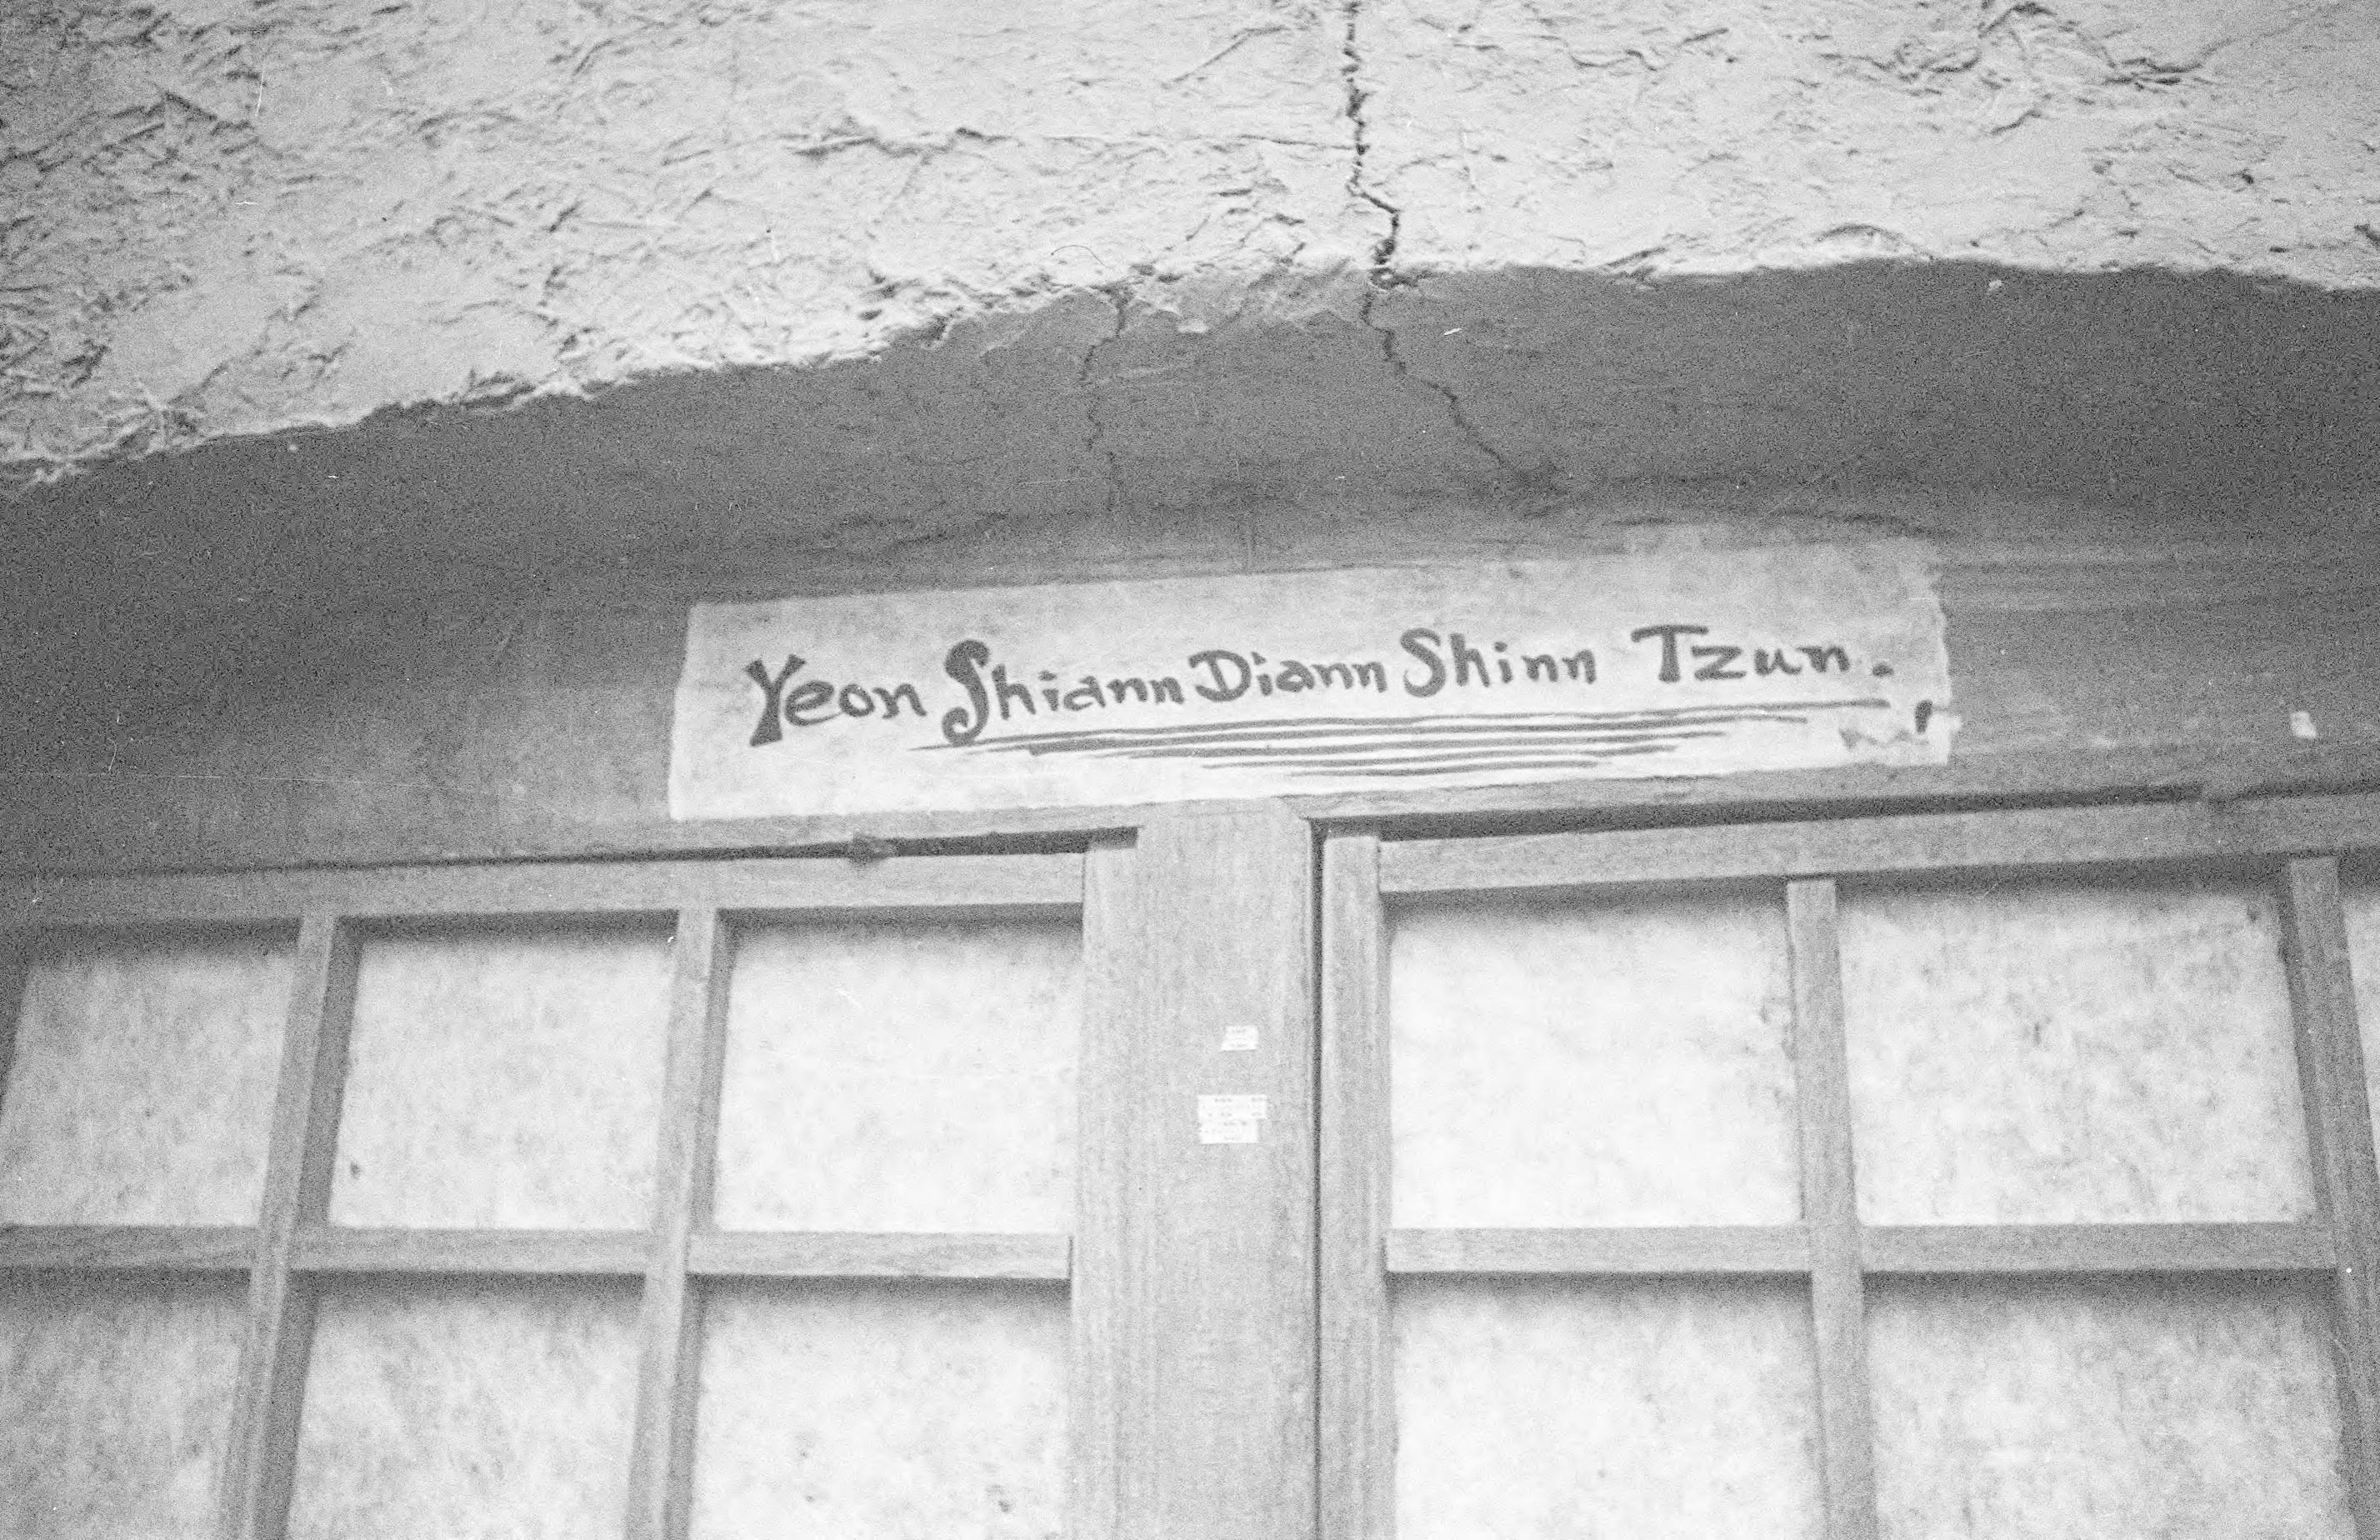 Yeon Shiann Diann Shinn Tzun.